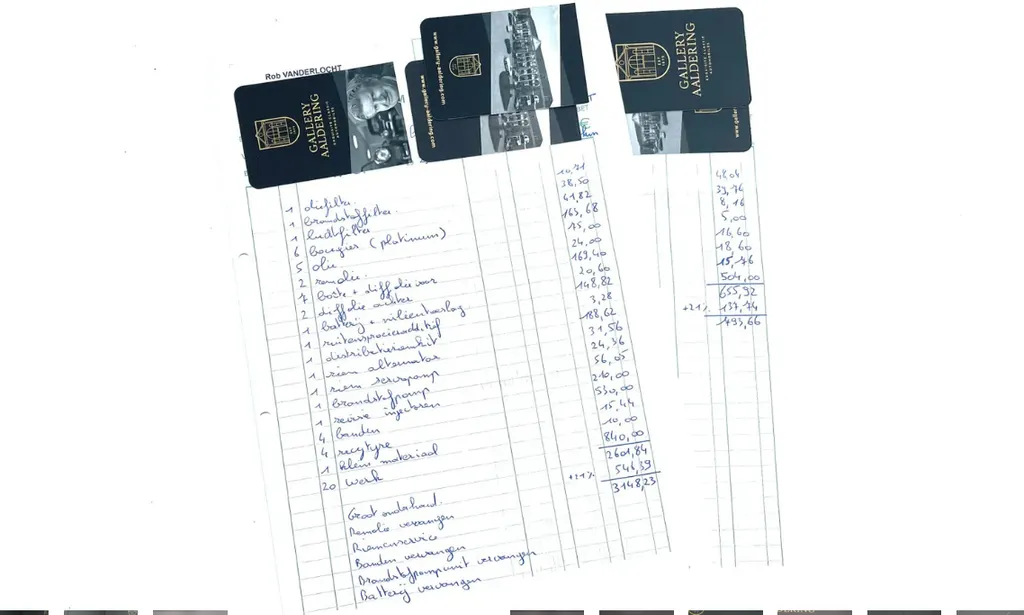 Rob VANDERLOCHT
GALLERY
AALDERING
www.gallery-aaldering.com
www.gallery-aaldering.com
GALLERY
AALDERING
1 oliefilter 10,71
1 brandstoffilter 38,50
1 luchtfilter 41,82
6 bougies (platinum) 165,68
5 olie 75,00
2 remolie 24,00
7 boite + diff olie voor 169,40
2 diff olie achter 20,60
1 batterij + milieutoeslag 148,82
1 ruitensproeieradditief 3,28
1 distributieriemkit 188,62
1 riem alternator 31,56
1 riem servopomp 24,36
1 brandstofpomp 56,05
1 revisie injectoren 210,00
4 banden 530,00
4 recytyre 15,44
1 klein materiaal 10,00
20 werk 840,00
2601,84
+21% 546,39
3148,23
Groot onderhoud.
Remolie vervangen
Riemenservice
Banden vervangen
Brandstofpompunit vervangen
Batterij vervangen
48,04
39,76
8,16
5,00
16,60
18,60
15,76
504,00
655,92
+21% 137,74
793,66